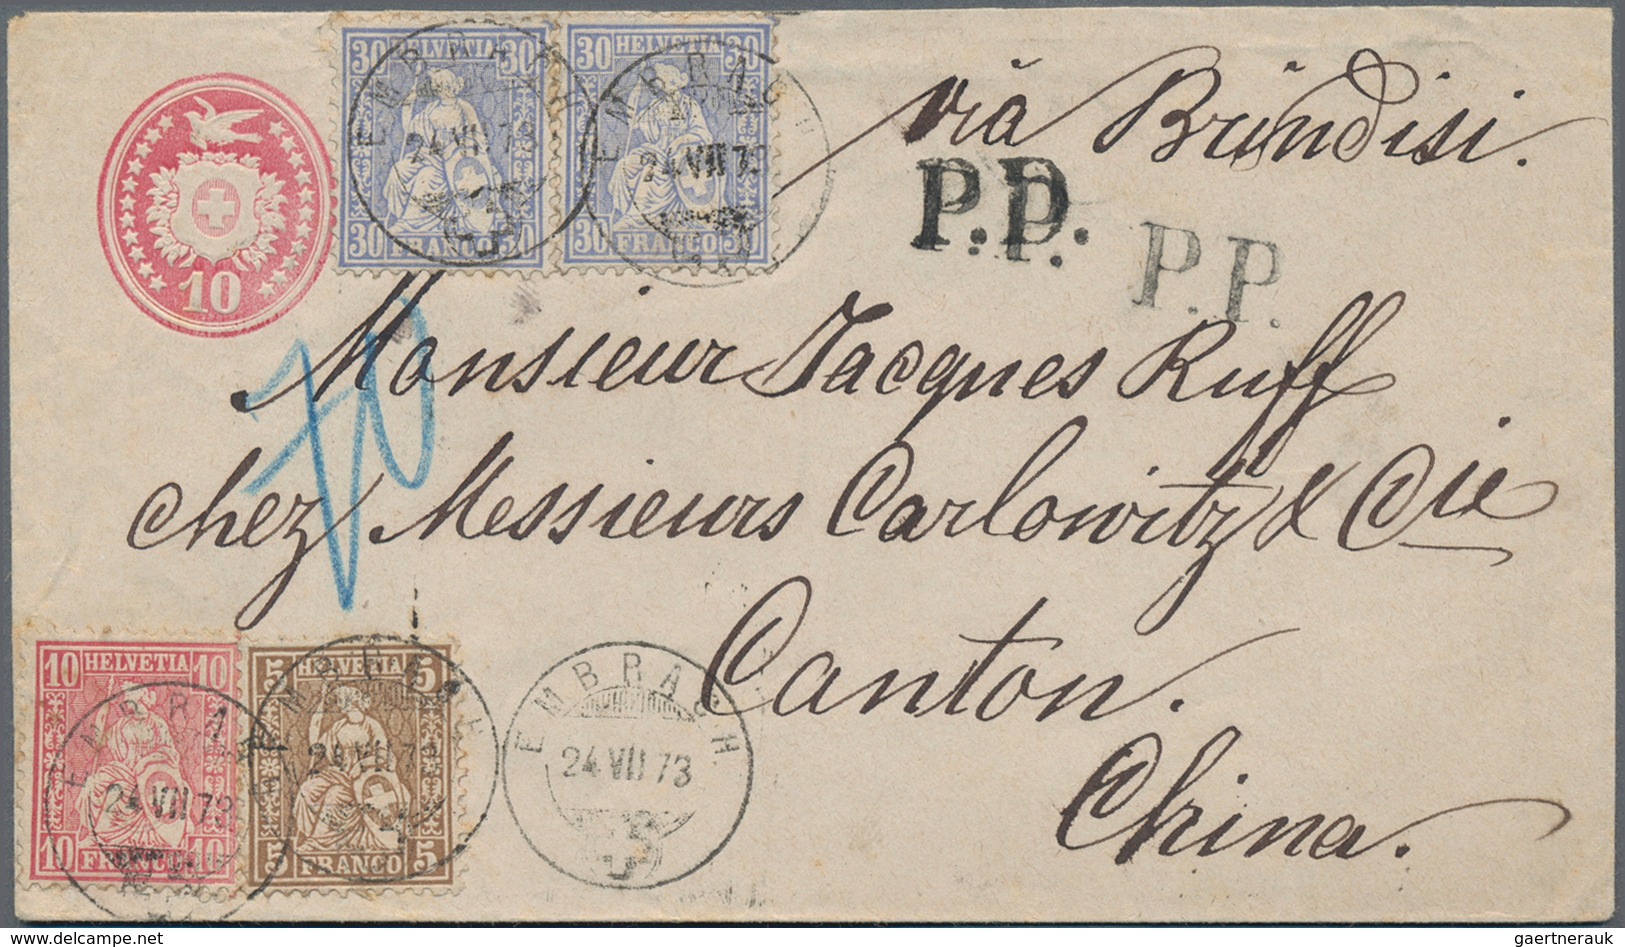 30 HELVETIA 30
30 FRANCO 30
30 HELVETIA 30
30 FRANCO 30
EMBRACH
24 VII 73
EMBRACH
24 VII 73
10
via Brindisi.
P.D.
P.P.
70
Monsieur Jacques Ruff
chez Messieurs Carlowitz & Cie
Canton.
China.
10 HELVETIA 10
10 FRANCO 10
EMBRACH
24 VII 73
5 HELVETIA 5
5 FRANCO 5
EMBRACH
24 VII 73
EMBRACH
24 VII 73
www.delcampe.net
gaertnerauk